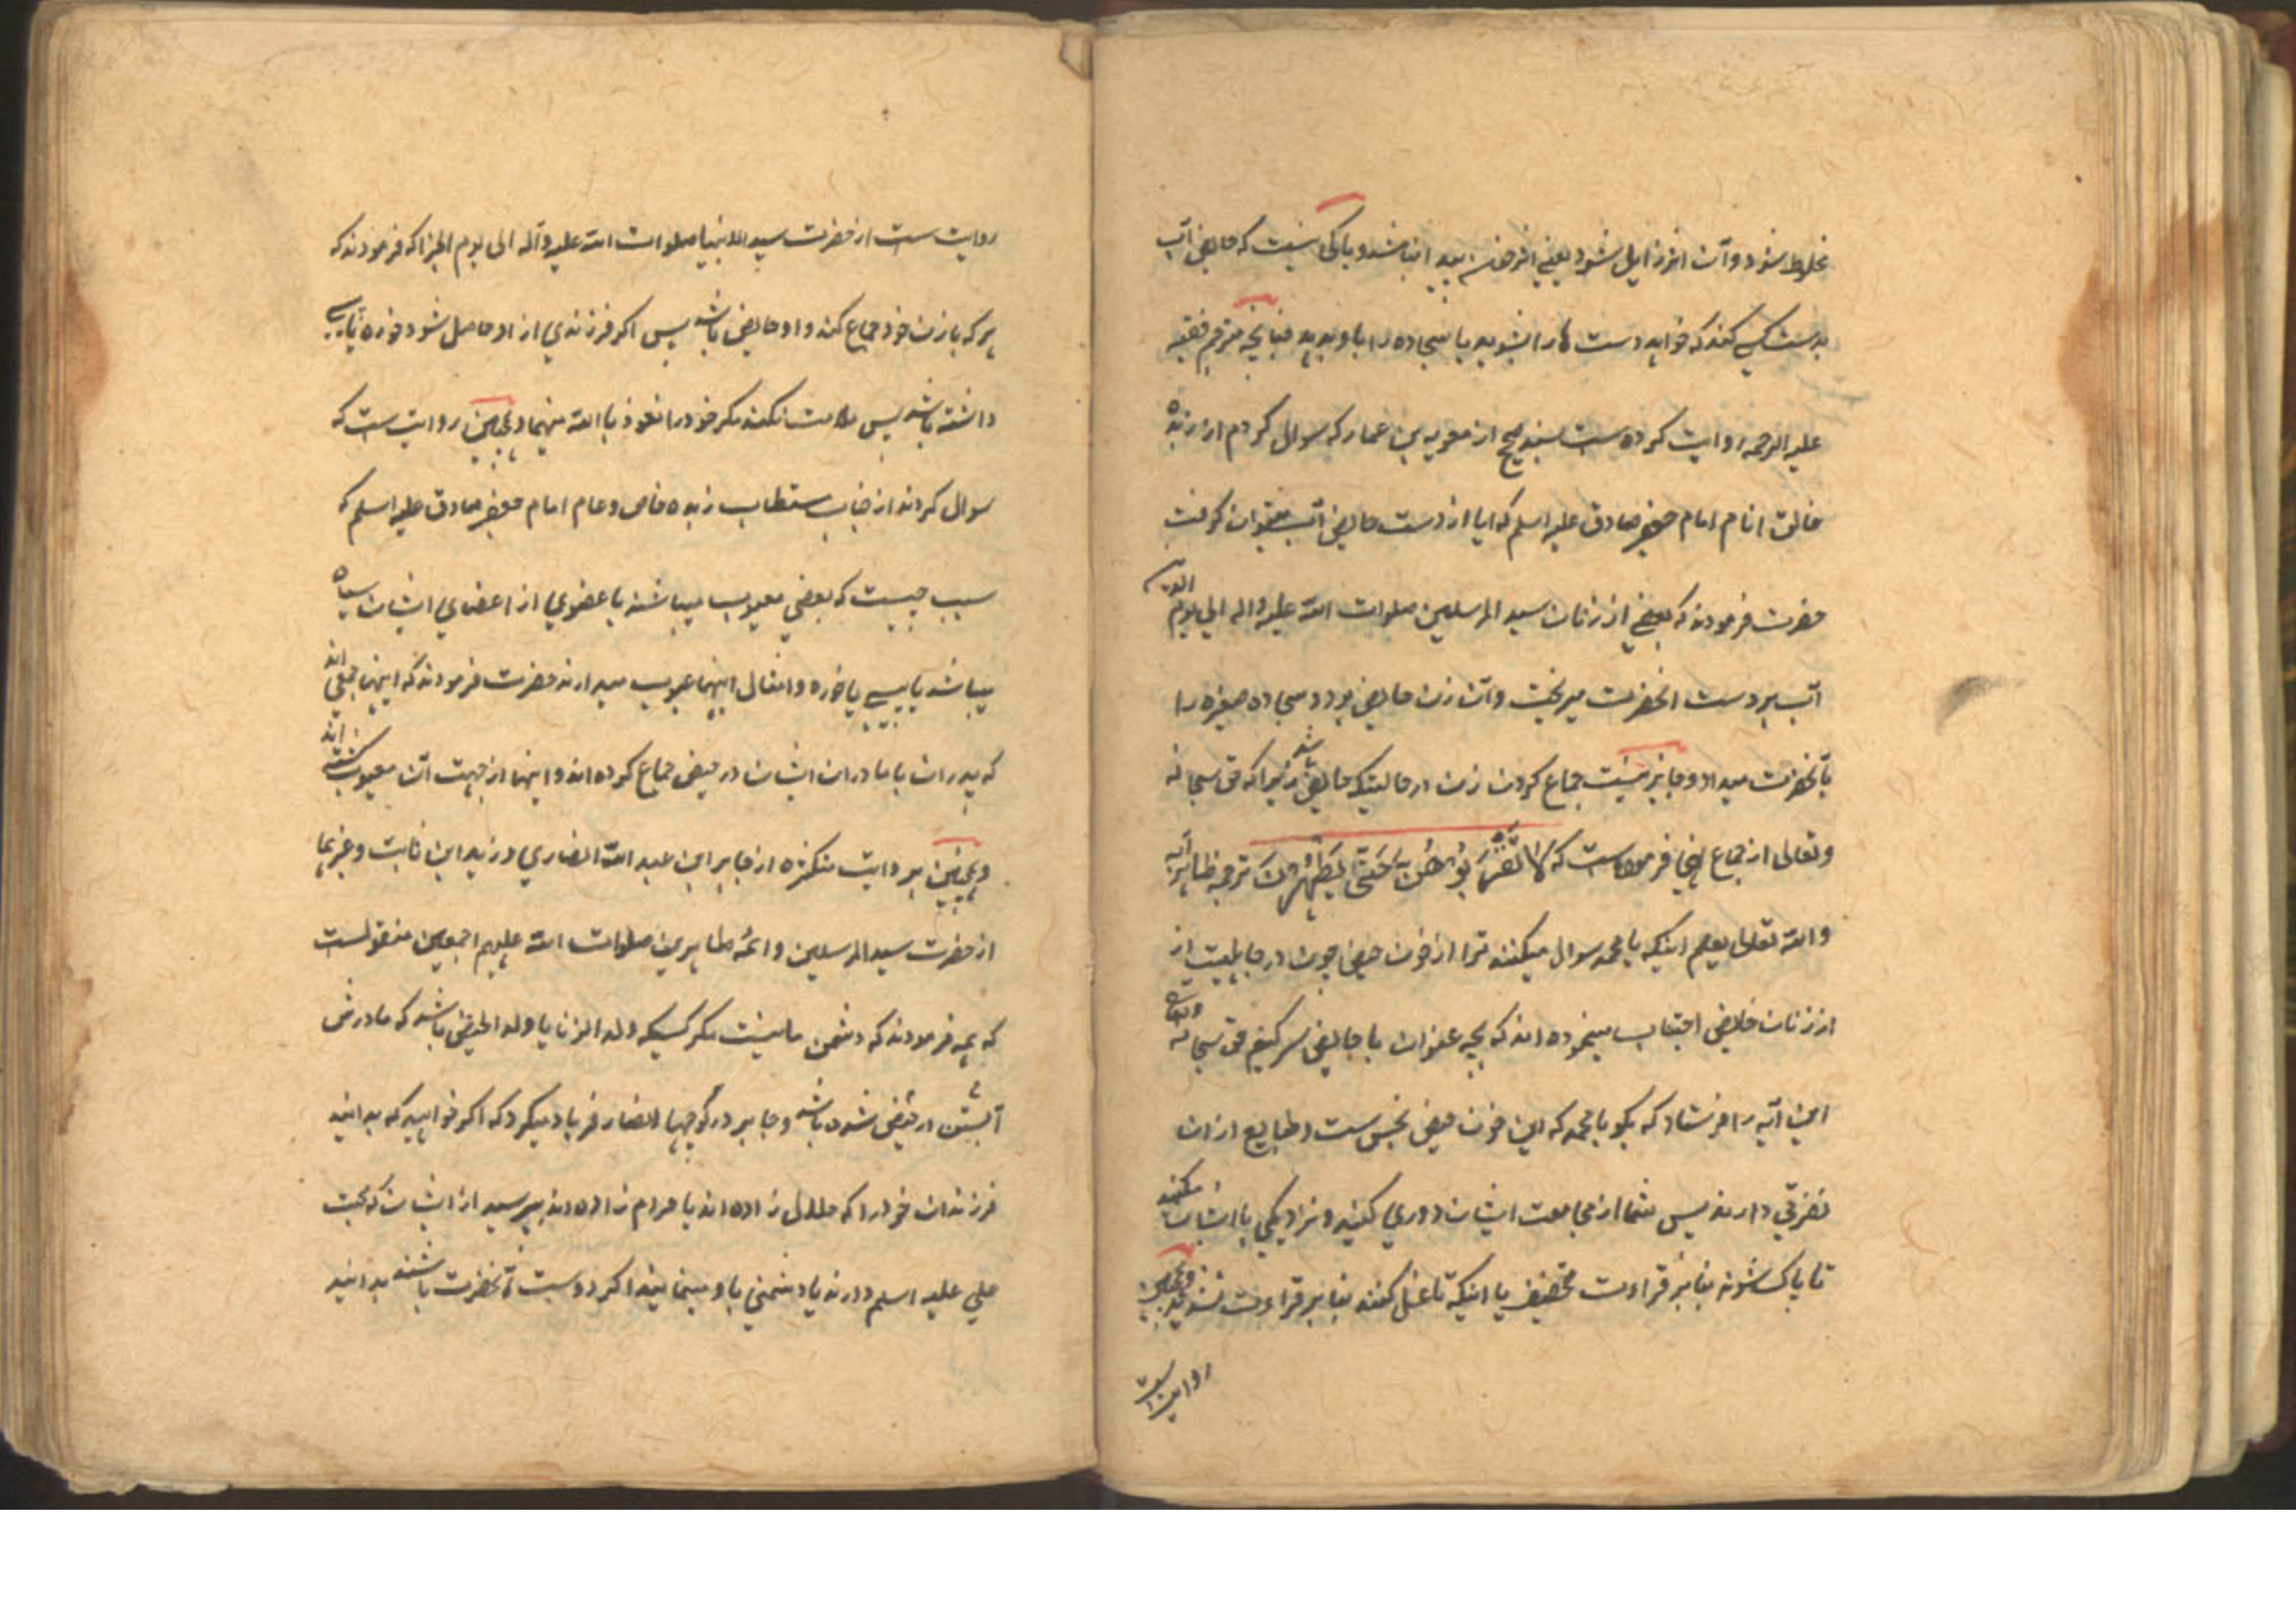 مخلوط شود و آن اثر زایل شود یعنی اثر خون بعد ازینها نشد و باکی نیست که حایض آب
بدست کسی کند که خواهد دست ها را بشوید یا سجاده را باو بدهد چنانچه مترجم فقیه
علیه الرحمه روایت کرده است بسند صحیح از معویه بن عمار که سوال کردم از زبده
خالق انام امام جعفر صادق علیه اسلم که ایا از دست حایض آب میتوان کرفت
حضرت فرمودند که بعضی از زنان سید المرسلین صلوات الله علیه واله الی یوم الدین
آب بر دست انحضرت میریخت و آن زن حایض بود و سجاده صغیره را
بآنحضرت میداد و جایز نیست جماع کردن زن در حالتیکه حایض باشد زیرا که حق سبحانه
وتعالی از جماع نهی فرموده است که لا تَقْرَبُوهُنَّ حَتّی یَطْهُرْنَ ترجمه ظاهر آیه
والله تعالی یعلم اینکه یا محمد سوال میکنند ترا از خون حیض چون در جاهلیت از
از زنان حایض اجتناب مینموده اند که بچه عنوان با حایض سر کنیم حق سبحانه وتعالی
این آیه را فرستاد که بکو یا محمد که این خون حیض نجس ست و طبایع از ان
نفرتی دارند پس شما از مجامعت ایشان دوری کنید و نزدیکی با ایشان مکنید
تا پاک شوند بنابر قراءت تخفیف یا اینکه تا غسل کنند بنابر قراءت تشدید و همچنین
روایت است
روایت ست از حضرت سید الانبیا صلوات الله علیه وآله الی یوم الجزا که فرمودند که
هر که با زن خود جماع کند و او حایض باشد پس اکر فرزندی از او حاصل شود و خوره یا پیسی
داشته باشد پس ملامت نکند مکر خود را نعوذ باالله منهما و همچنین روایت ست که
سوال کردند از جناب مستطاب زبده خاص و عام امام جعفر صادق علیه اسلم که
سبب چیست که بعضی معیوب میباشند یا عضوی از اعضای ایشان سیاه
میباشد یا پیسی یا خوره و امثال اینها عیوب میدارند حضرت فرمودند که اینها جمعی اند
که پدران با مادران ایشان در حیض جماع کرده اند و اینها از جهت آن معیوب شده اند
و همچنین بر روایت متکثره از جابر ابن عبد الله انصاری و زید ابن ثابت و غیرهما
از حضرت سید المرسلین و ائمه طاهرین صلوات الله علیهم اجمعین منقولست
که همه فرمودند که دشمن ما نیست مکر کسیکه ولد الزنا یا ولد الحیض باشد که مادرش
آبستن از حیض شده باشد و جابر در کوچها انصار فریاد میکرد که اکر خواهید که بدانید
فرزندان خود را که حلال زاده اند یا حرام زاده اند بپرسید از ایشان که محبت
علی علیه اسلم دارند یا دشمنی باو مینمایند اکر دوست آنحضرت باشند بدانید